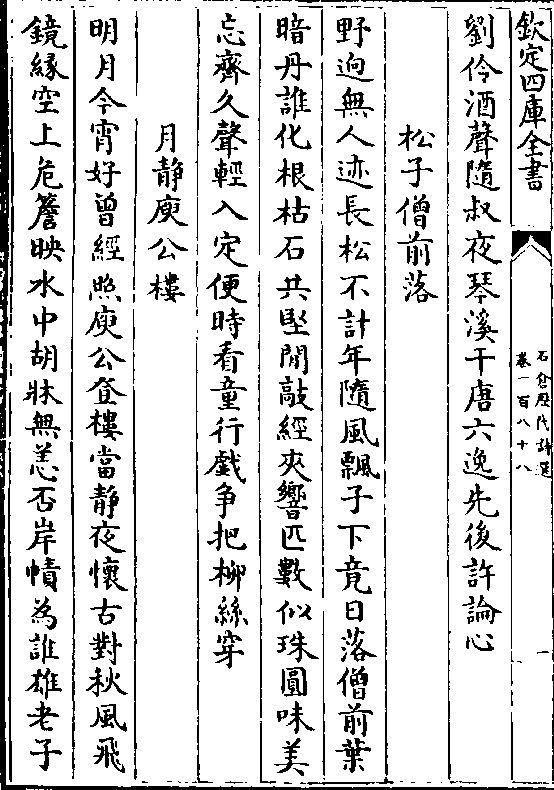 欽定四庫全書
石倉歷代詩選
卷一百八十八
一
劉伶酒聲隨叔夜琴溪干唐六逸先後許論心
松子僧前落
野逈無人迹長松不計年隨風飄子下竟日落僧前葉
暗丹誰化根枯石共堅閒敲經夾響匹數似珠圓味美
忘齋久聲輕入定便時看童行戲争把柳絲穿
月静庾公樓
明月今宵好曾經照庾公登樓當静夜懷古對秋風飛
鏡緣空上危簷映水中胡牀無恙否岸幘為誰雄老子